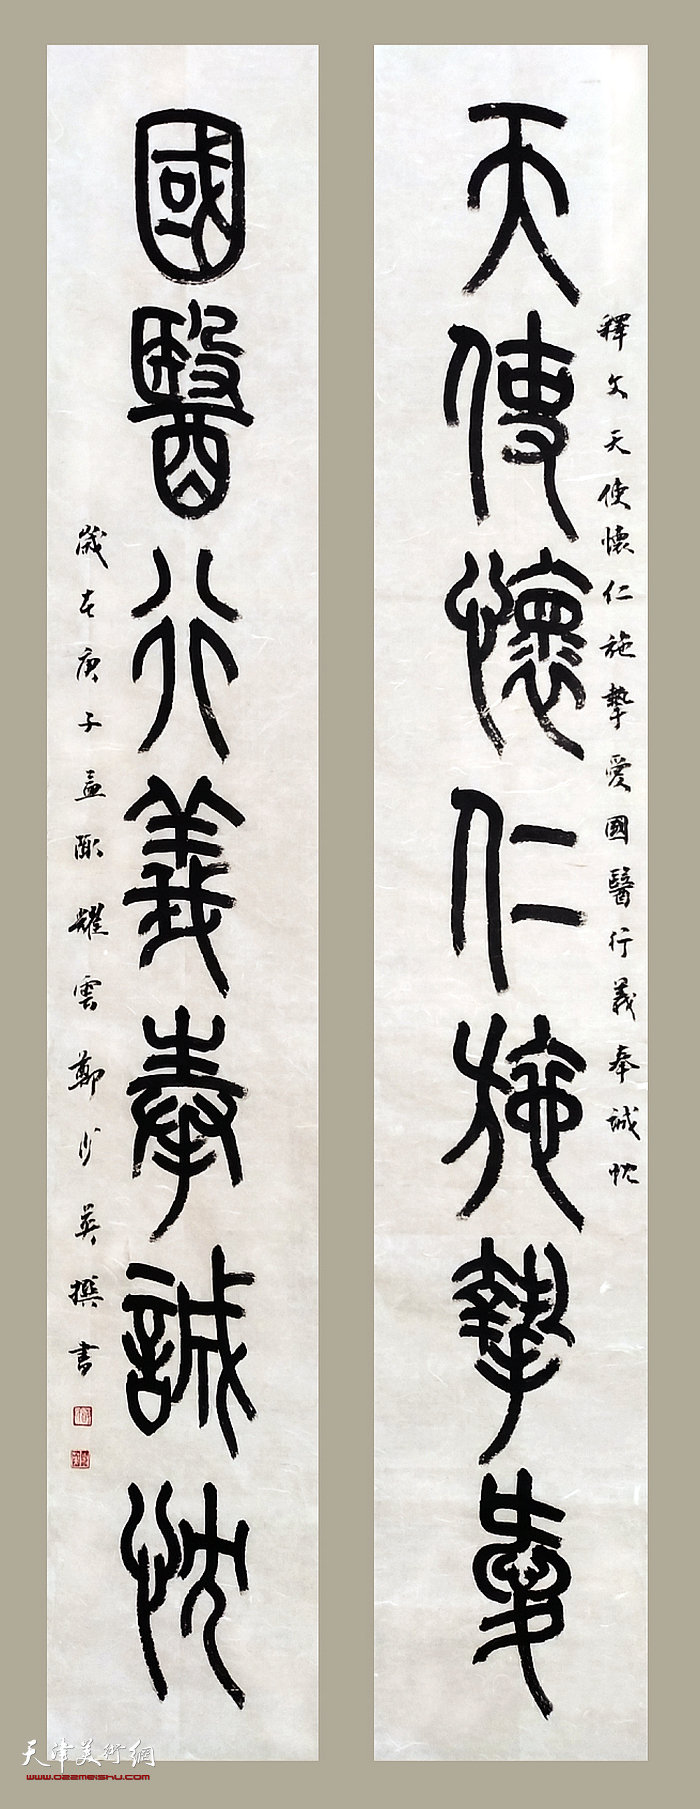 天使懷仁施摯愛
釋文天使懷仁施摯愛國醫行義奉誠忱
國醫行義奉誠忱
歲在庚子孟陬耀雲鄭少英撰書
天津美術網
www.022meishu.com